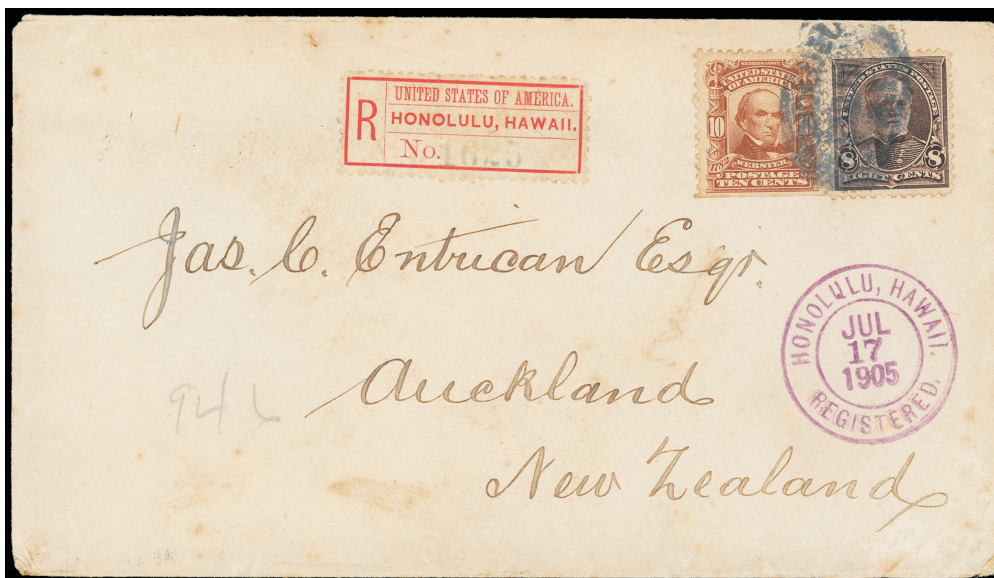 R
UNITED STATES OF AMERICA.
HONOLULU, HAWAII.
No. 1695
SERIES 1902
UNITED STATES
OF AMERICA
10
WEBSTER
POSTAGE
TEN CENTS
UNITED STATES POSTAGE
8 8
EIGHT CENTS
Jas. C. Entrican Esqr.
Auckland
New Zealand
HONOLULU, HAWAII.
JUL
17
1905
REGISTERED.
946